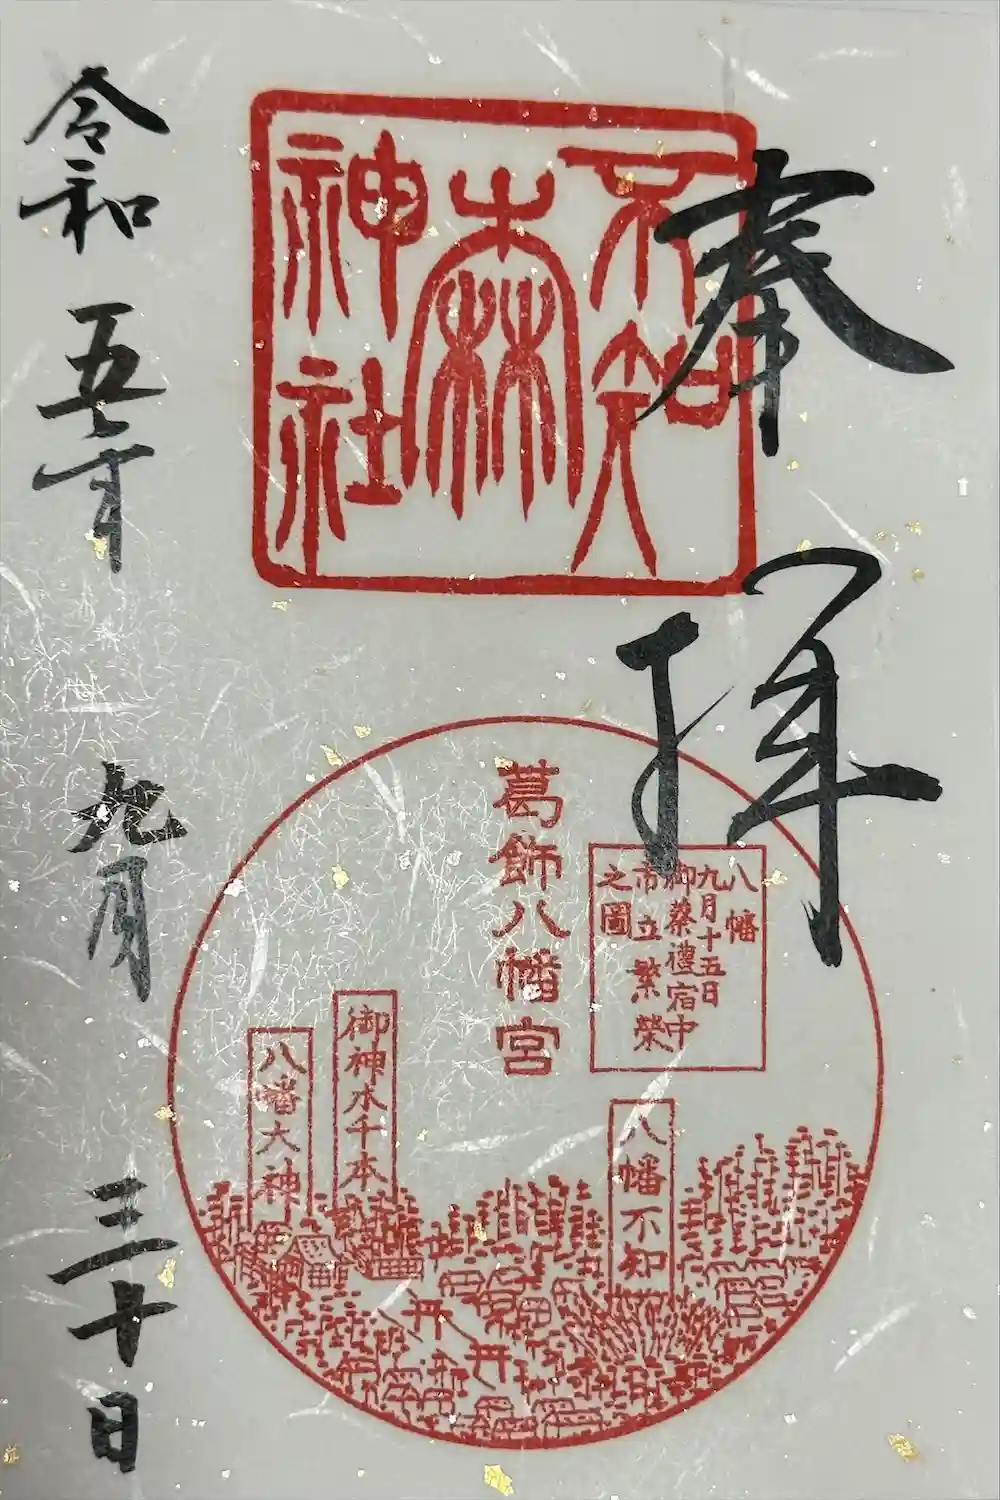 奉拝
不知
森
神社
葛飾八幡宮
八幡
九月十五日
御祭禮宿中
市立繁榮
之圖
八幡不知
御神木千本
八幡大神
令和五年九月三十日